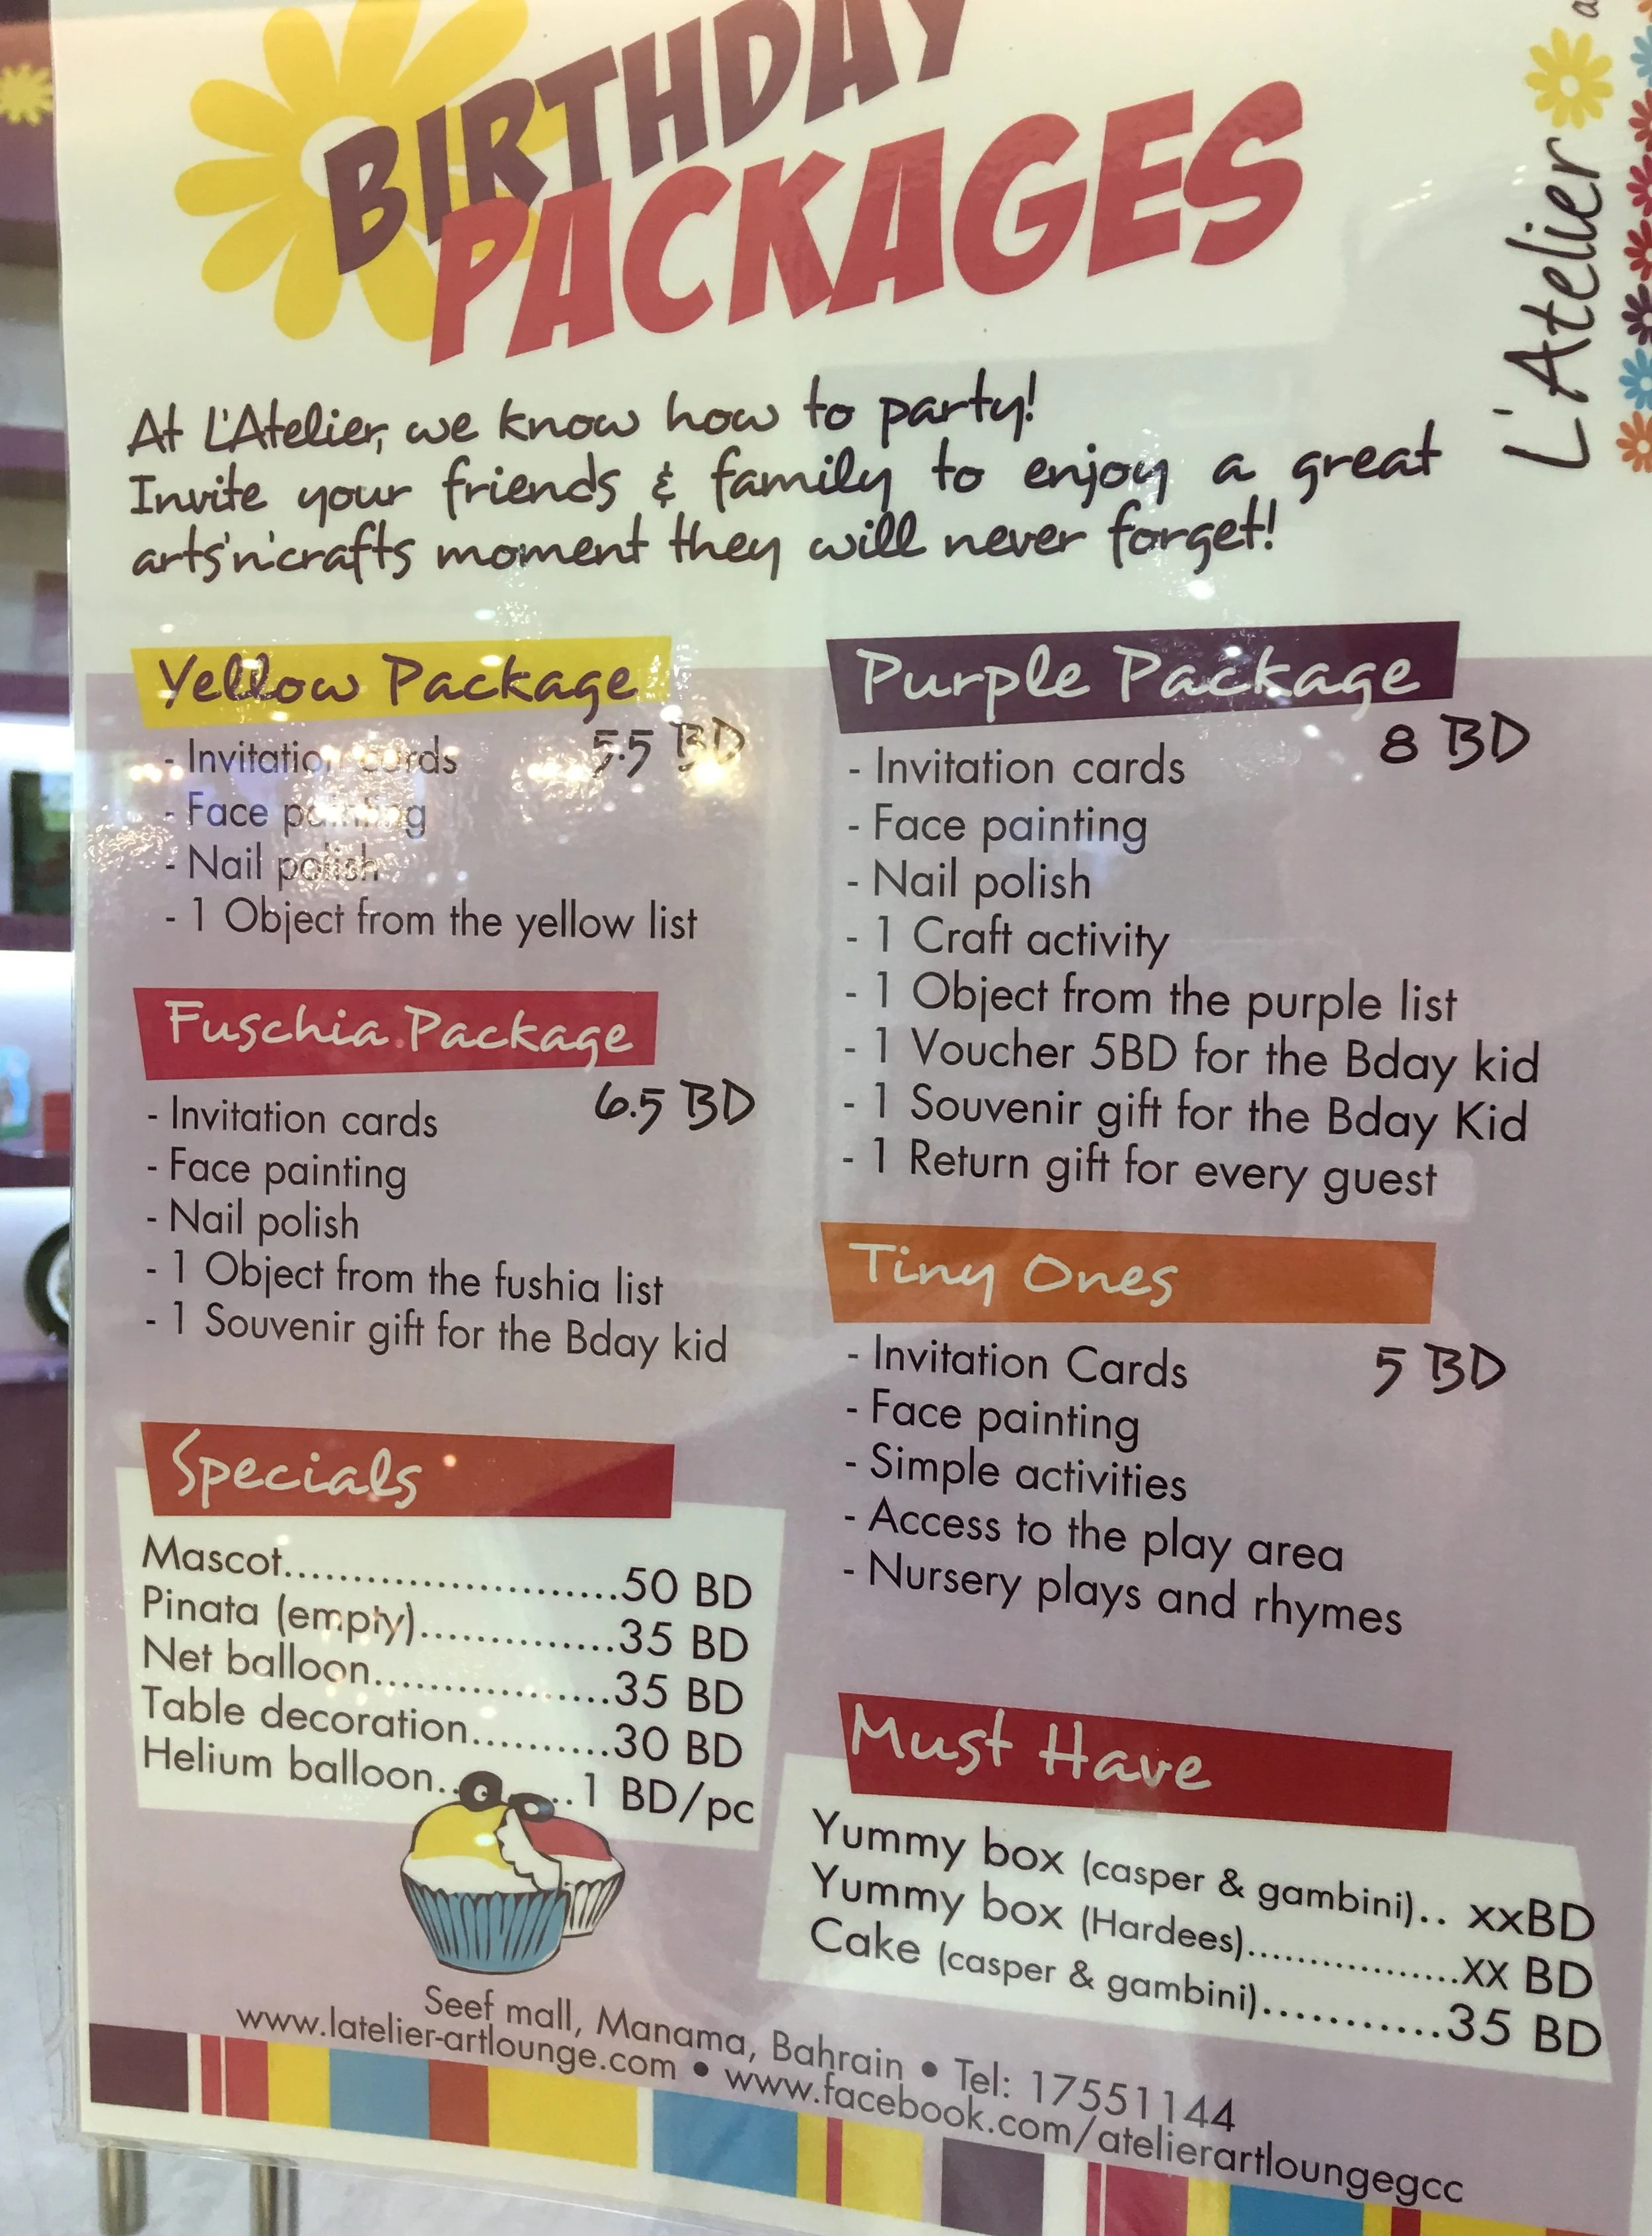 BIRTHDAY
PACKAGES
L'Atelier
At L'Atelier, we know how to party!
Invite your friends & family to enjoy a great
arts'n'crafts moment they will never forget!
Yellow Package
5.5 BD
- Invitation cards
- Face painting
- Nail polish
- 1 Object from the yellow list
Fuschia Package
6.5 BD
- Invitation cards
- Face painting
- Nail polish
- 1 Object from the fushia list
- 1 Souvenir gift for the Bday kid
Specials
Mascot.........................50 BD
Pinata (empty)...............35 BD
Net balloon..................35 BD
Table decoration..........30 BD
Helium balloon.. ..1 BD/pc
Purple Package
8 BD
- Invitation cards
- Face painting
- Nail polish
- 1 Craft activity
- 1 Object from the purple list
- 1 Voucher 5BD for the Bday kid
- 1 Souvenir gift for the Bday Kid
- 1 Return gift for every guest
Tiny Ones
5 BD
- Invitation Cards
- Face painting
- Simple activities
- Access to the play area
- Nursery plays and rhymes
Must Have
Yummy box (casper & gambini).. xxBD
Yummy box (Hardees)................xx BD
Cake (casper & gambini).............35 BD
Seef mall, Manama, Bahrain • Tel: 17551144
www.latelier-artlounge.com • www.facebook.com/atelierartloungegcc